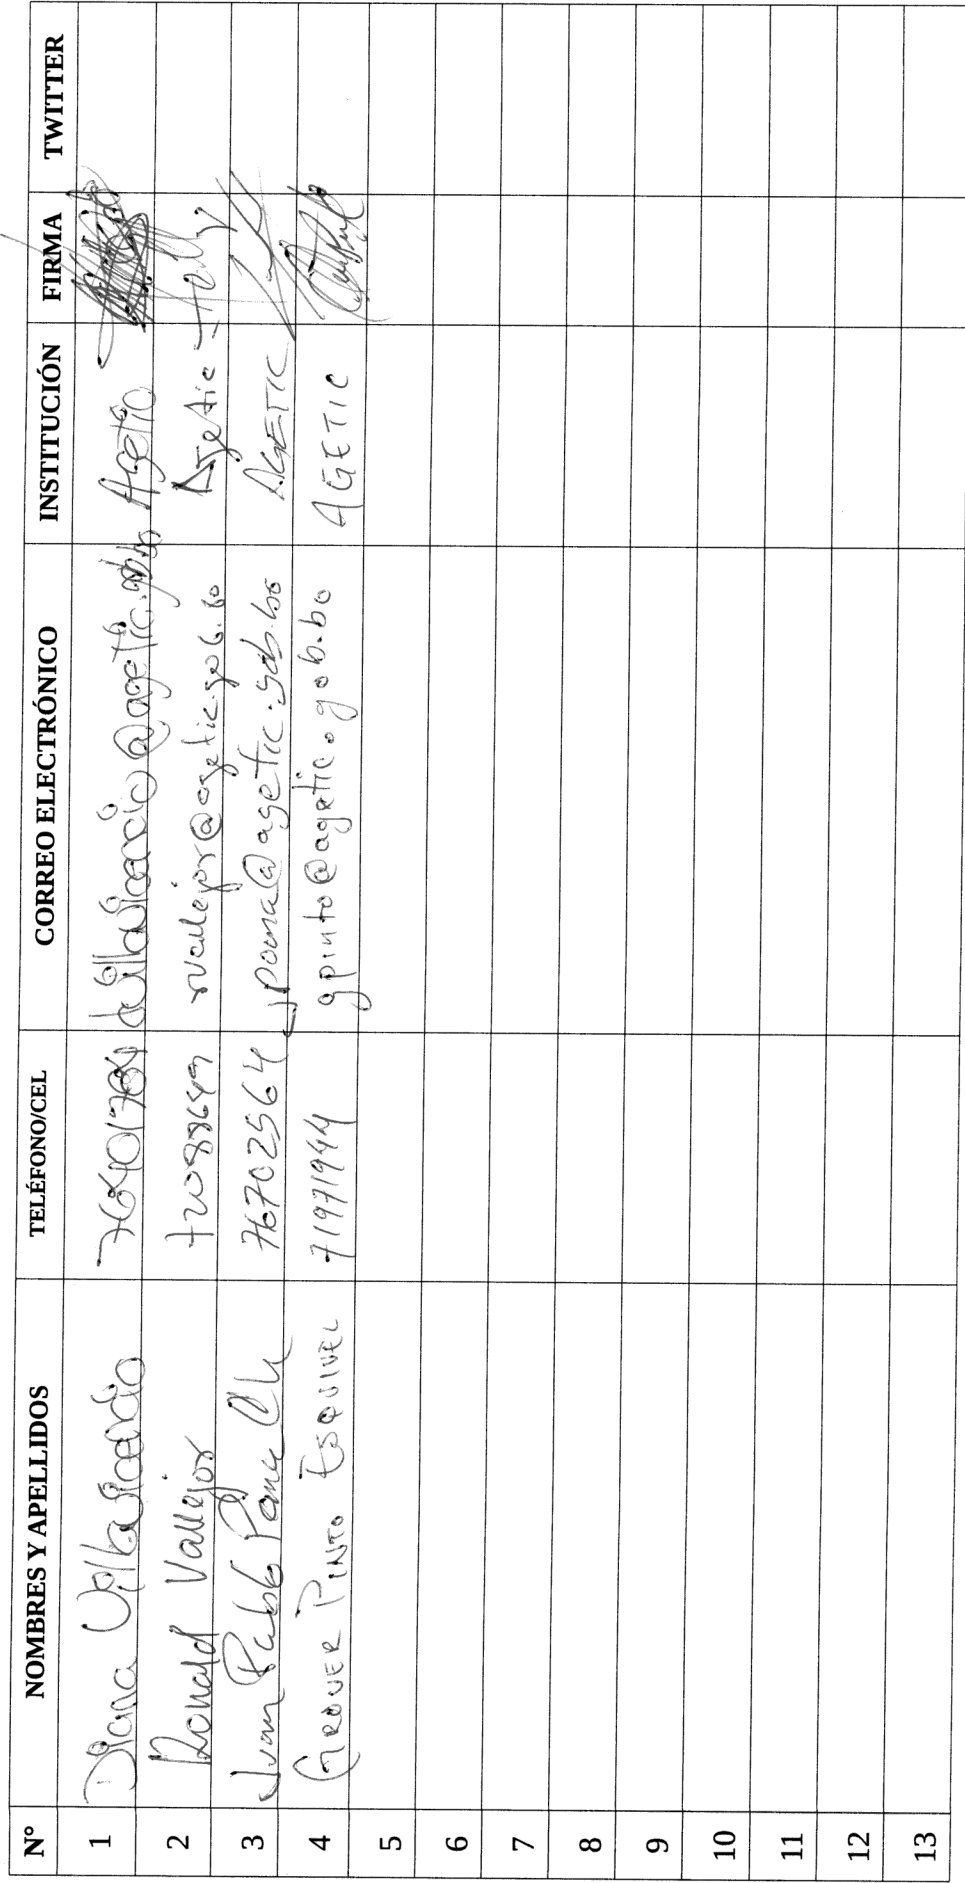 N° NOMBRES Y APELLIDOS TELÉFONO/CEL CORREO ELECTRÓNICO INSTITUCIÓN FIRMA TWITTER
1 Diana Villavicencio 76401784 dvillavicencio@agetic.gob.bo Agetic
2 Ronald Vallejos 72088649 rvallejos@agetic.gob.bo Agetic
3 Juan Pablo Poma 76702564 jpoma@agetic.gob.bo AGETIC
4 GROVER PINTO ESQUIVEL 71971944 gpinto@agetic.gob.bo AGETIC
5
6
7
8
9
10
11
12
13